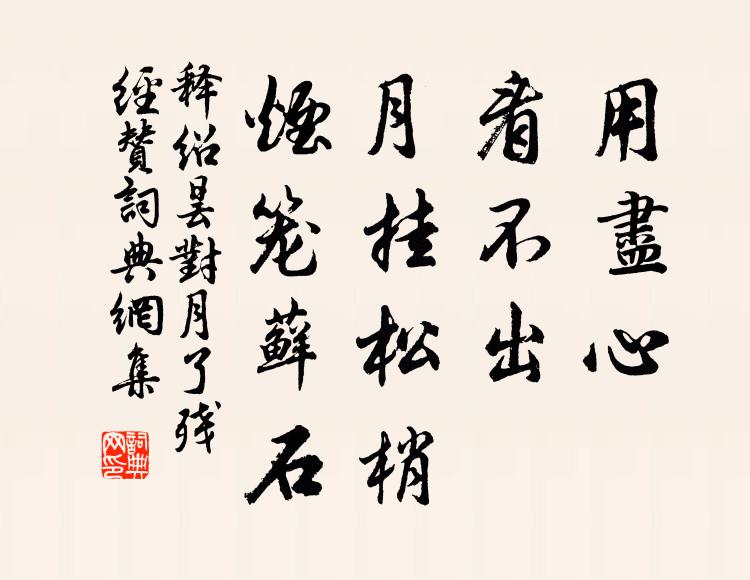 用盡心
看不出
月挂松梢
煙笼蘚石
释绍曇對月了残
經贊詞典網集
詞典网印